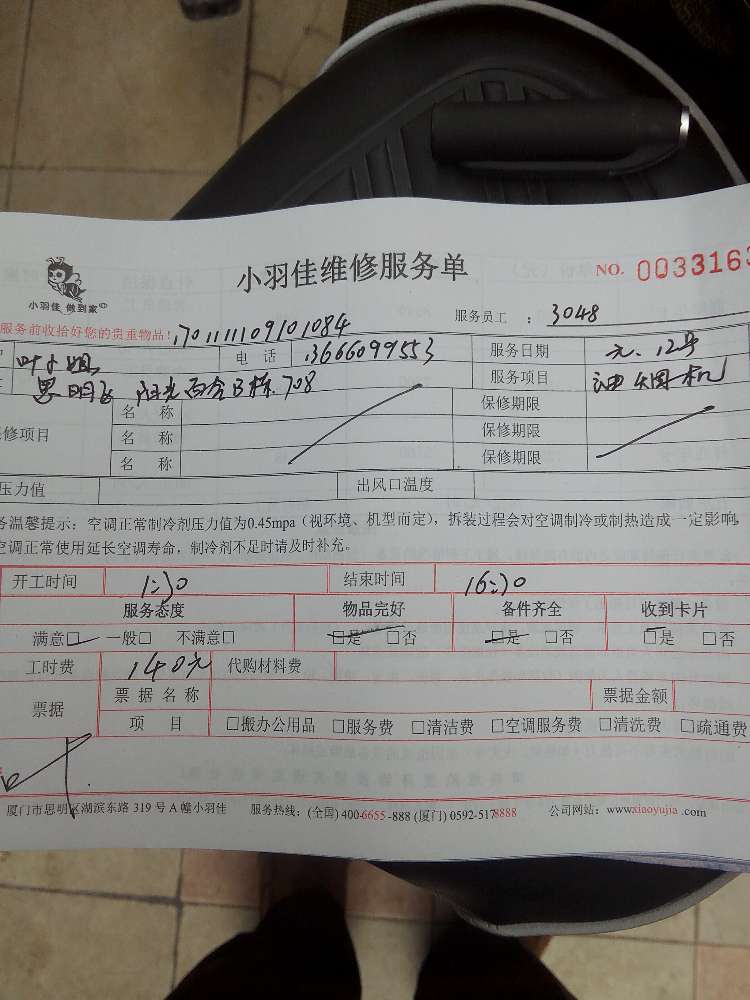 小羽佳维修服务单
NO. 003316
小羽佳 做到家
服务员工 : 3048
服务前收拾好您的贵重物品! 701111109101084
叶小姐 电话 13666099553 服务日期 元.12号
思明区 阳光百合B栋.708 服务项目 油烟机
修项目 名称 保修期限
名称 保修期限
名称 保修期限
压力值 出风口温度
务温馨提示：空调正常制冷剂压力值为0.45mpa（视环境、机型而定），拆装过程会对空调制冷或制热造成一定影响，
空调正常使用延长空调寿命，制冷剂不足时请及时补充。
开工时间 1:30 结束时间 16:30
服务态度 物品完好 备件齐全 收到卡片
满意□ 一般□ 不满意□ □是 □否 □是 □否 □是 □否
工时费 140元 代购材料费
票据 票据名称 票据金额
项目 □搬办公用品 □服务费 □清洁费 □空调服务费 □清洗费 □疏通费
厦门市思明区湖滨东路 319 号 A 幢小羽佳 服务热线：(全国) 400-6655-888 (厦门) 0592-5178888 公司网站：www.xiaoyujia.com